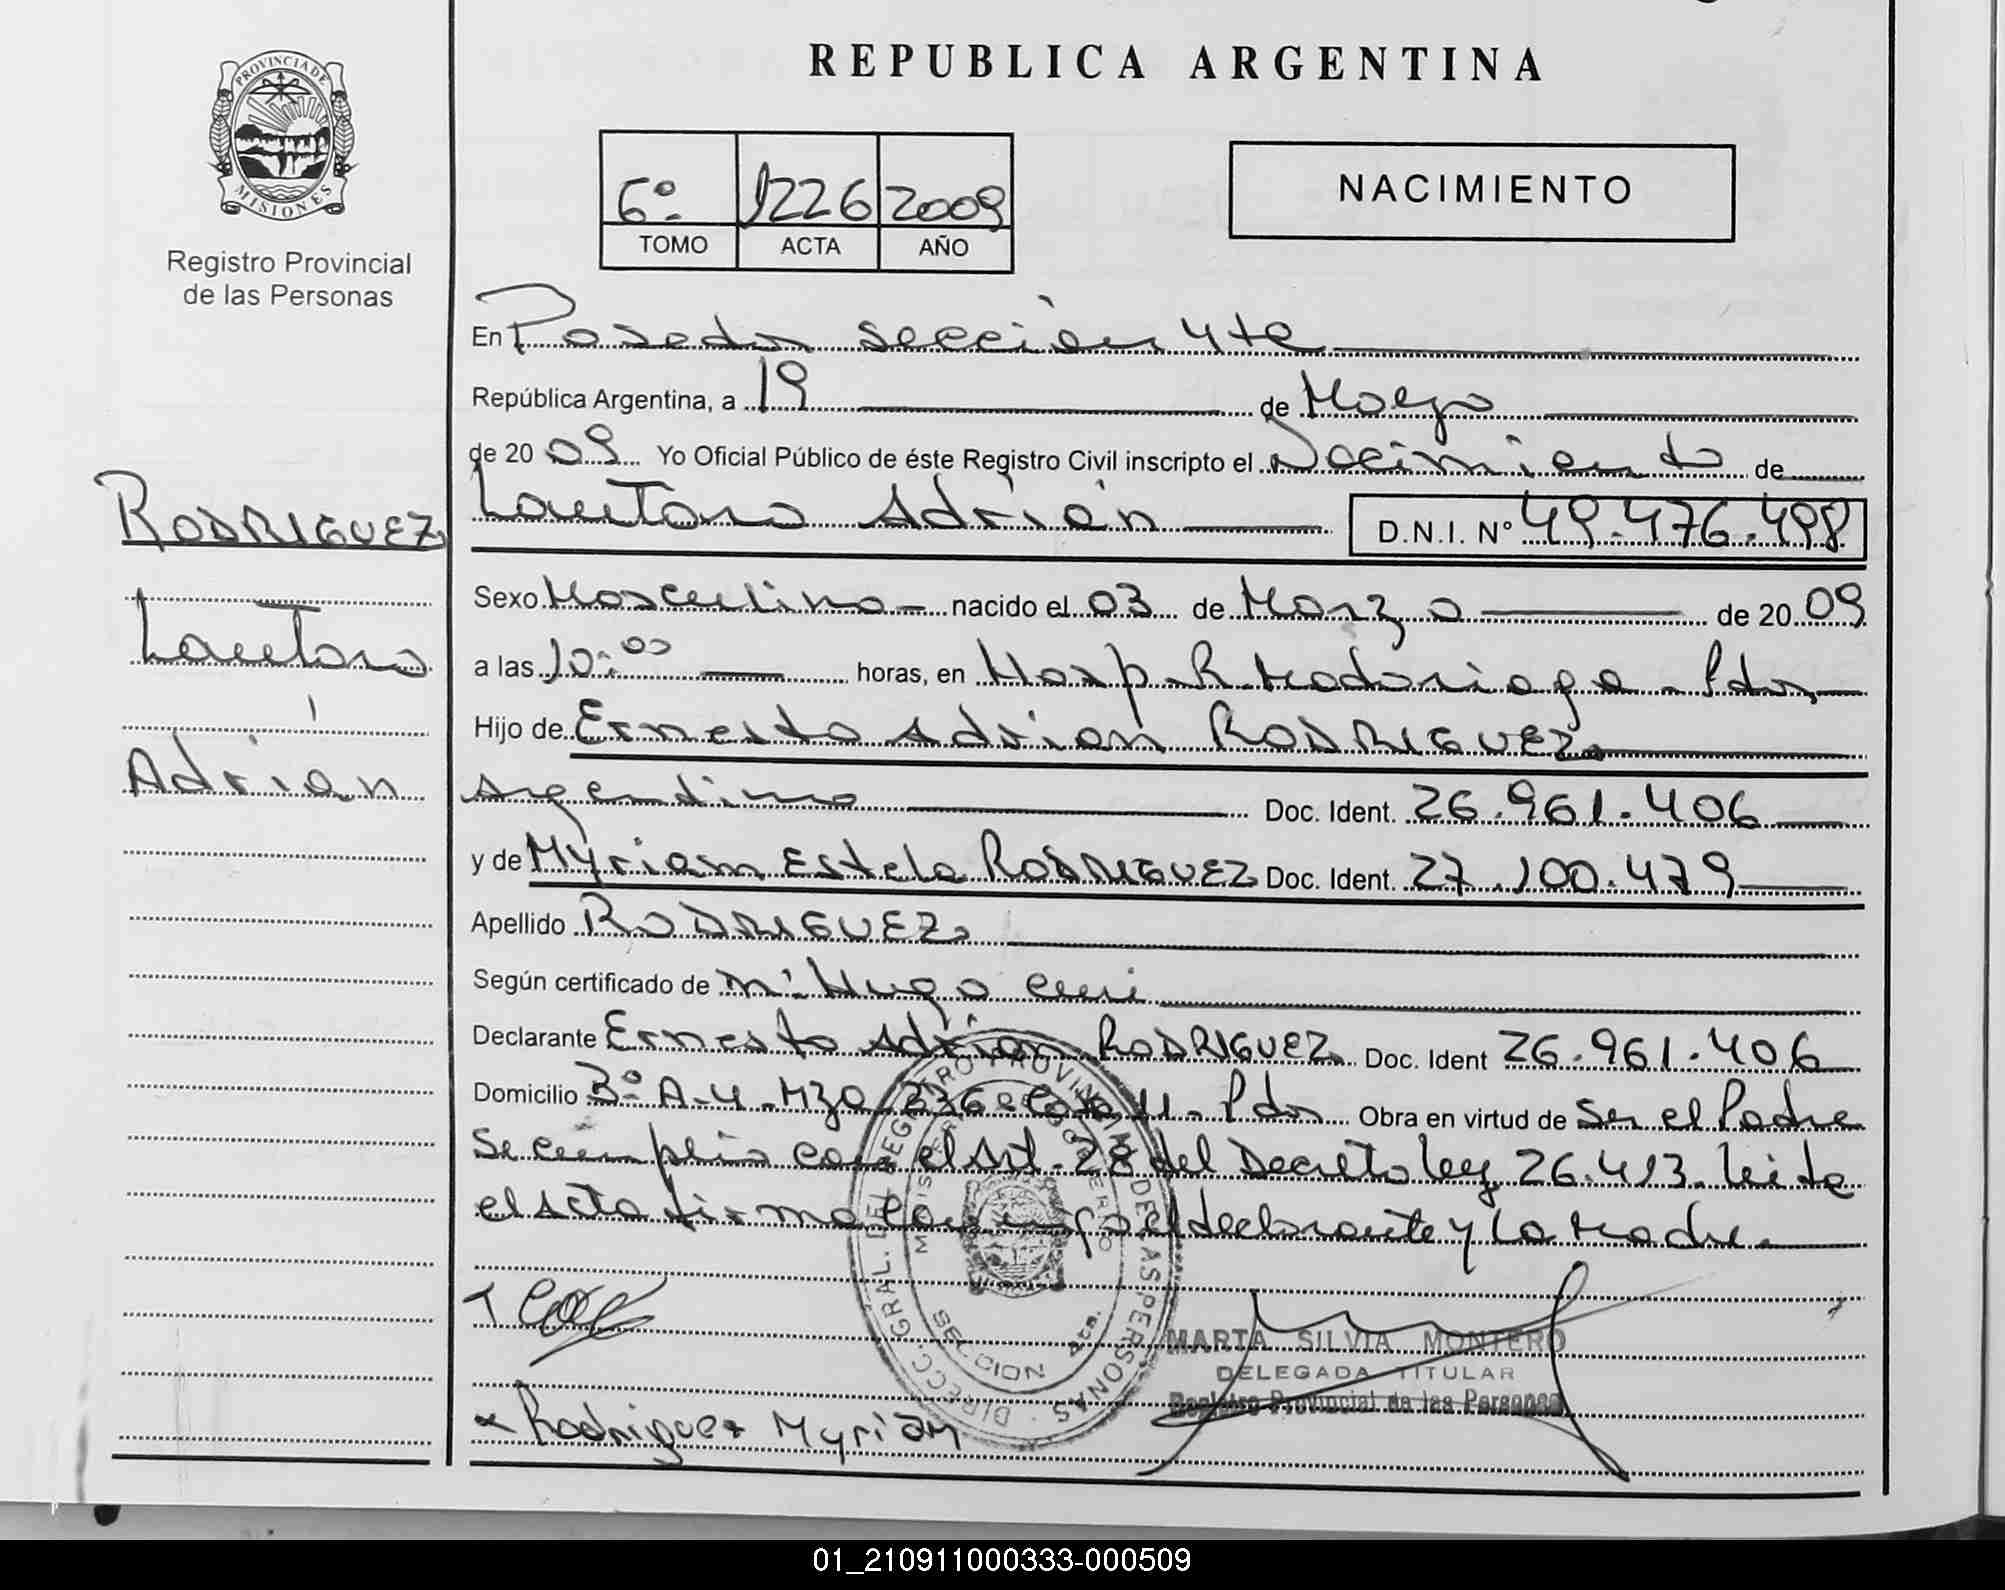 REPUBLICA ARGENTINA
PROVINCIA DE
MISIONES
Registro Provincial
de las Personas
6º 1226 2009
TOMO ACTA AÑO
NACIMIENTO
En Posadas sección 4ta
República Argentina, a 19 de Mayo
de 2009 Yo Oficial Público de éste Registro Civil inscripto el Nacimiento de
Lautaro Adrián D.N.I. Nº 49.476.498
RODRIGUEZ
Lautaro
Adrián
Sexo Masculino nacido el 03 de Marzo de 2009
a las 10:00 horas, en Hosp. R. Madariaga - Pdas
Hijo de Ernesto Adrian RODRIGUEZ
Argentino Doc. Ident. 26.961.406
y de Myriam Estela RODRIGUEZ Doc. Ident. 27.100.479
Apellido RODRIGUEZ
Según certificado de Hugo
Declarante Ernesto Adrian RODRIGUEZ Doc. Ident 26.961.406
Domicilio A-4 - Mza 276 - Casa 11 - Pdas Obra en virtud de ser el Padre
Se cumplio con el Art. 28 del Decreto ley 26.413. Leida
el Acta firma conmigo el declarante y La Madre.
DIRECC. GRAL. DEL REGISTRO PROVINCIAL DE LAS PERSONAS
SECCION 4ta.
MARTA SILVIA MONTERO
DELEGADA TITULAR
Registro Provincial de las Personas
Rodriguez Myriam
01_210911000333-000509